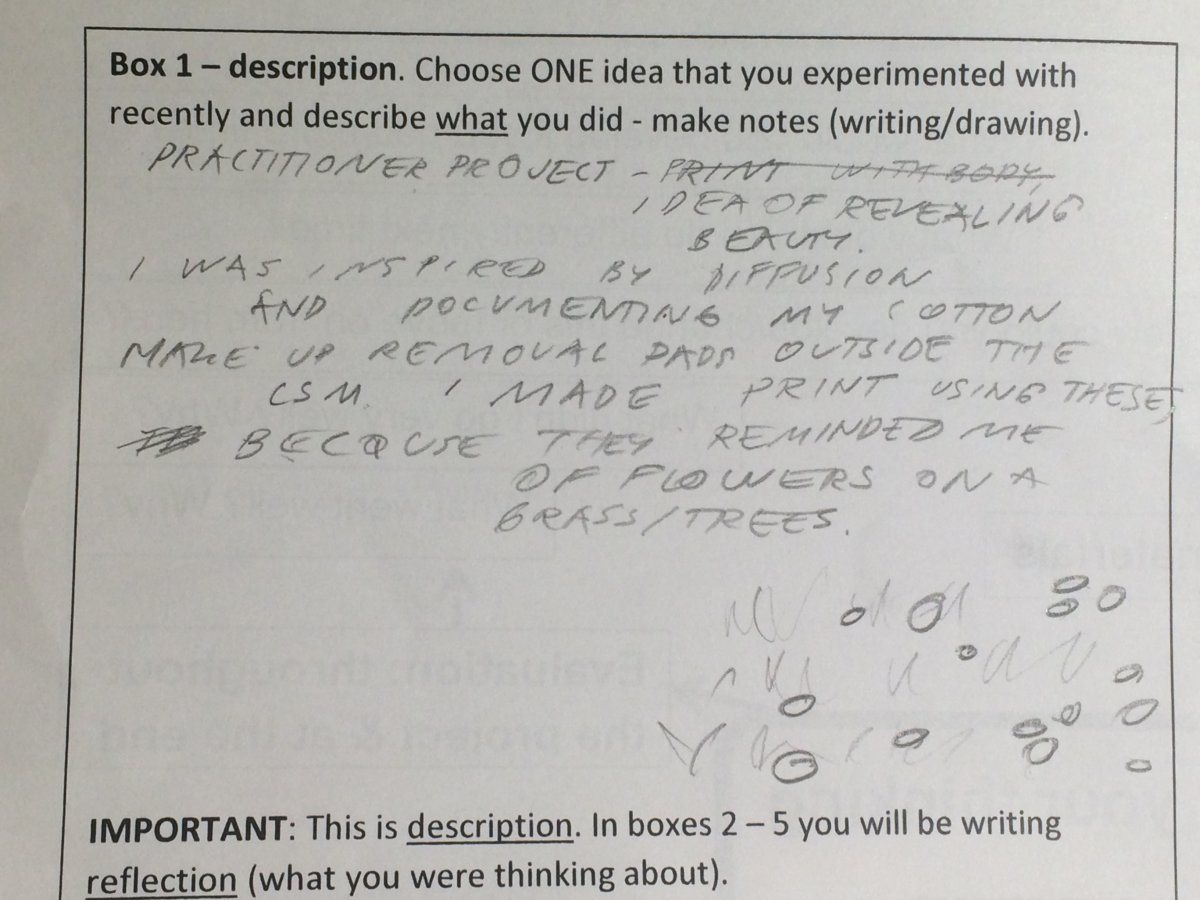 Box 1 – description. Choose ONE idea that you experimented with
recently and describe what you did - make notes (writing/drawing).
PRACTITIONER PROJECT – PRINT WITH BODY,
IDEA OF REVEALING
BEAUTY.
I WAS INSPIRED BY DIFFUSION
AND DOCUMENTING MY COTTON
MAKE UP REMOVAL PADS OUTSIDE THE
CSM. I MADE PRINT USING THESE,
BECAUSE THEY REMINDED ME
OF FLOWERS ON A
GRASS/TREES.
IMPORTANT: This is description. In boxes 2 – 5 you will be writing
reflection (what you were thinking about).